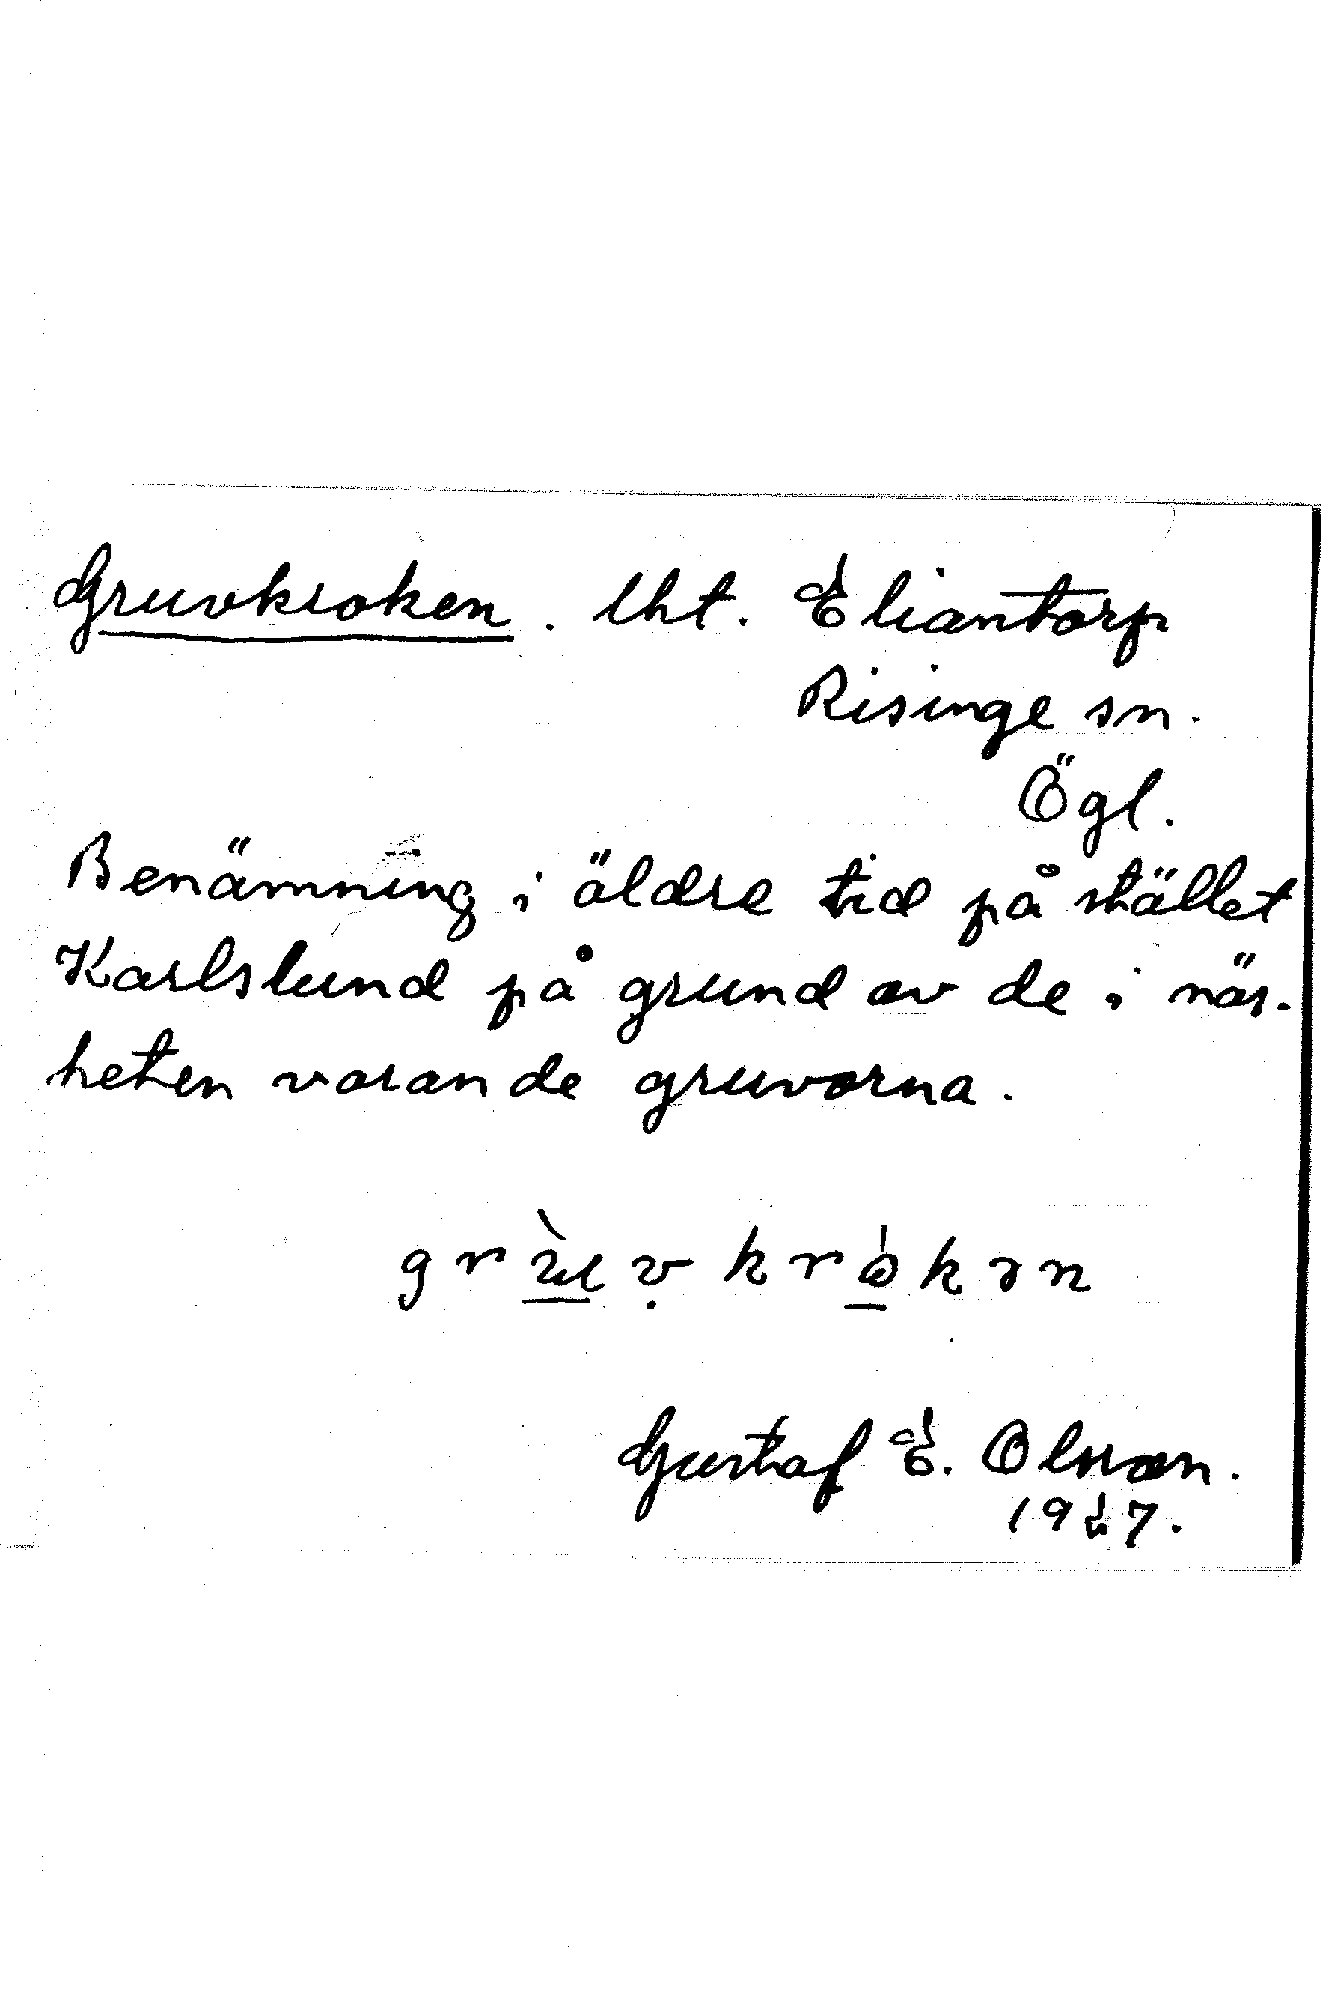 Gruvkroken. lht. Eliantorp
Risinge sn.
Ögl.
Benämning i äldre tid på stället
Karlslund på grund av de i när-
heten varande gruvorna.
grùvkrókən
Gustaf E. Olsson.
1927.